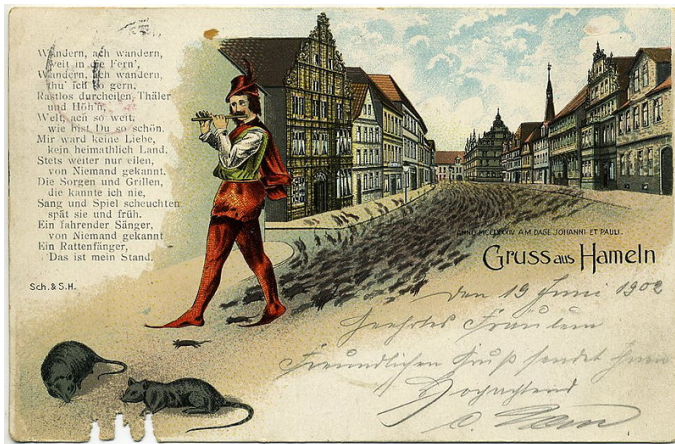 Wandern, ach wandern,
weit in die Fern',
Wandern, ach wandern,
thu' ich so gern.
Rastlos durcheilen Thäler
und Höh'n,
Welt, ach so weit,
wie bist Du so schön.
Mir ward keine Liebe,
kein heimathlich Land,
Stets weiter nur eilen,
von Niemand gekannt.
Die Sorgen und Grillen,
die kannte ich nie,
Sang und Spiel scheuchten
spät sie und früh.
Ein fahrender Sänger,
von Niemand gekannt
Ein Rattenfänger,
Das ist mein Stand.
Sch. & S.H.
ANNO AM DAGE JOHANNI ET PAULI.
Gruss aus Hameln
den 19 Juni 1902
Geehrtes Fräulein
Freundlichen Gruß sendet Ihnen
Hochachtend